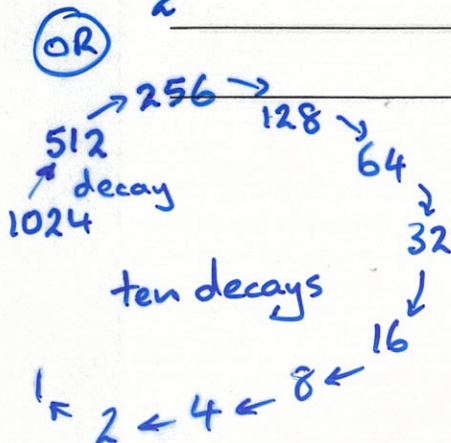 OR
1024 → 512 → 256 → 128 → 64 → 32 → 16 → 8 → 4 → 2 → 1
decay
ten decays